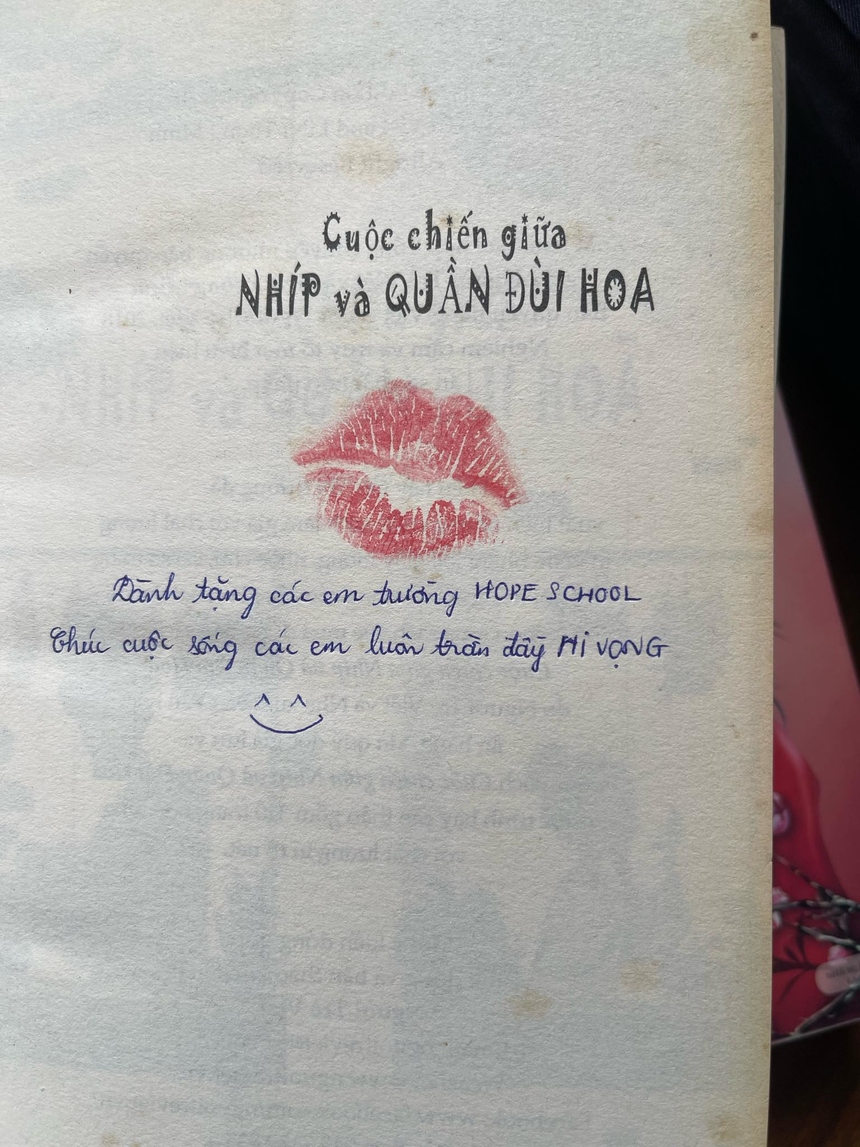 Cuộc chiến giữa
NHÍP và QUẦN ĐÙI HOA
Dành tặng các em trường HOPE SCHOOL
Chúc cuộc sống các em luôn tràn đầy HI VỌNG
^ ^